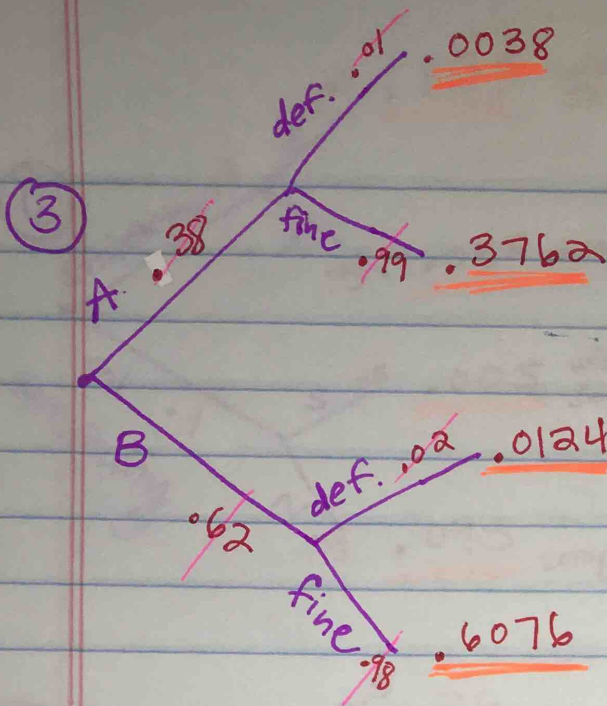 def. .01 .0038
3
fine .99 .3762
A .38
B .62
def. .02 .0124
fine .98 .6076